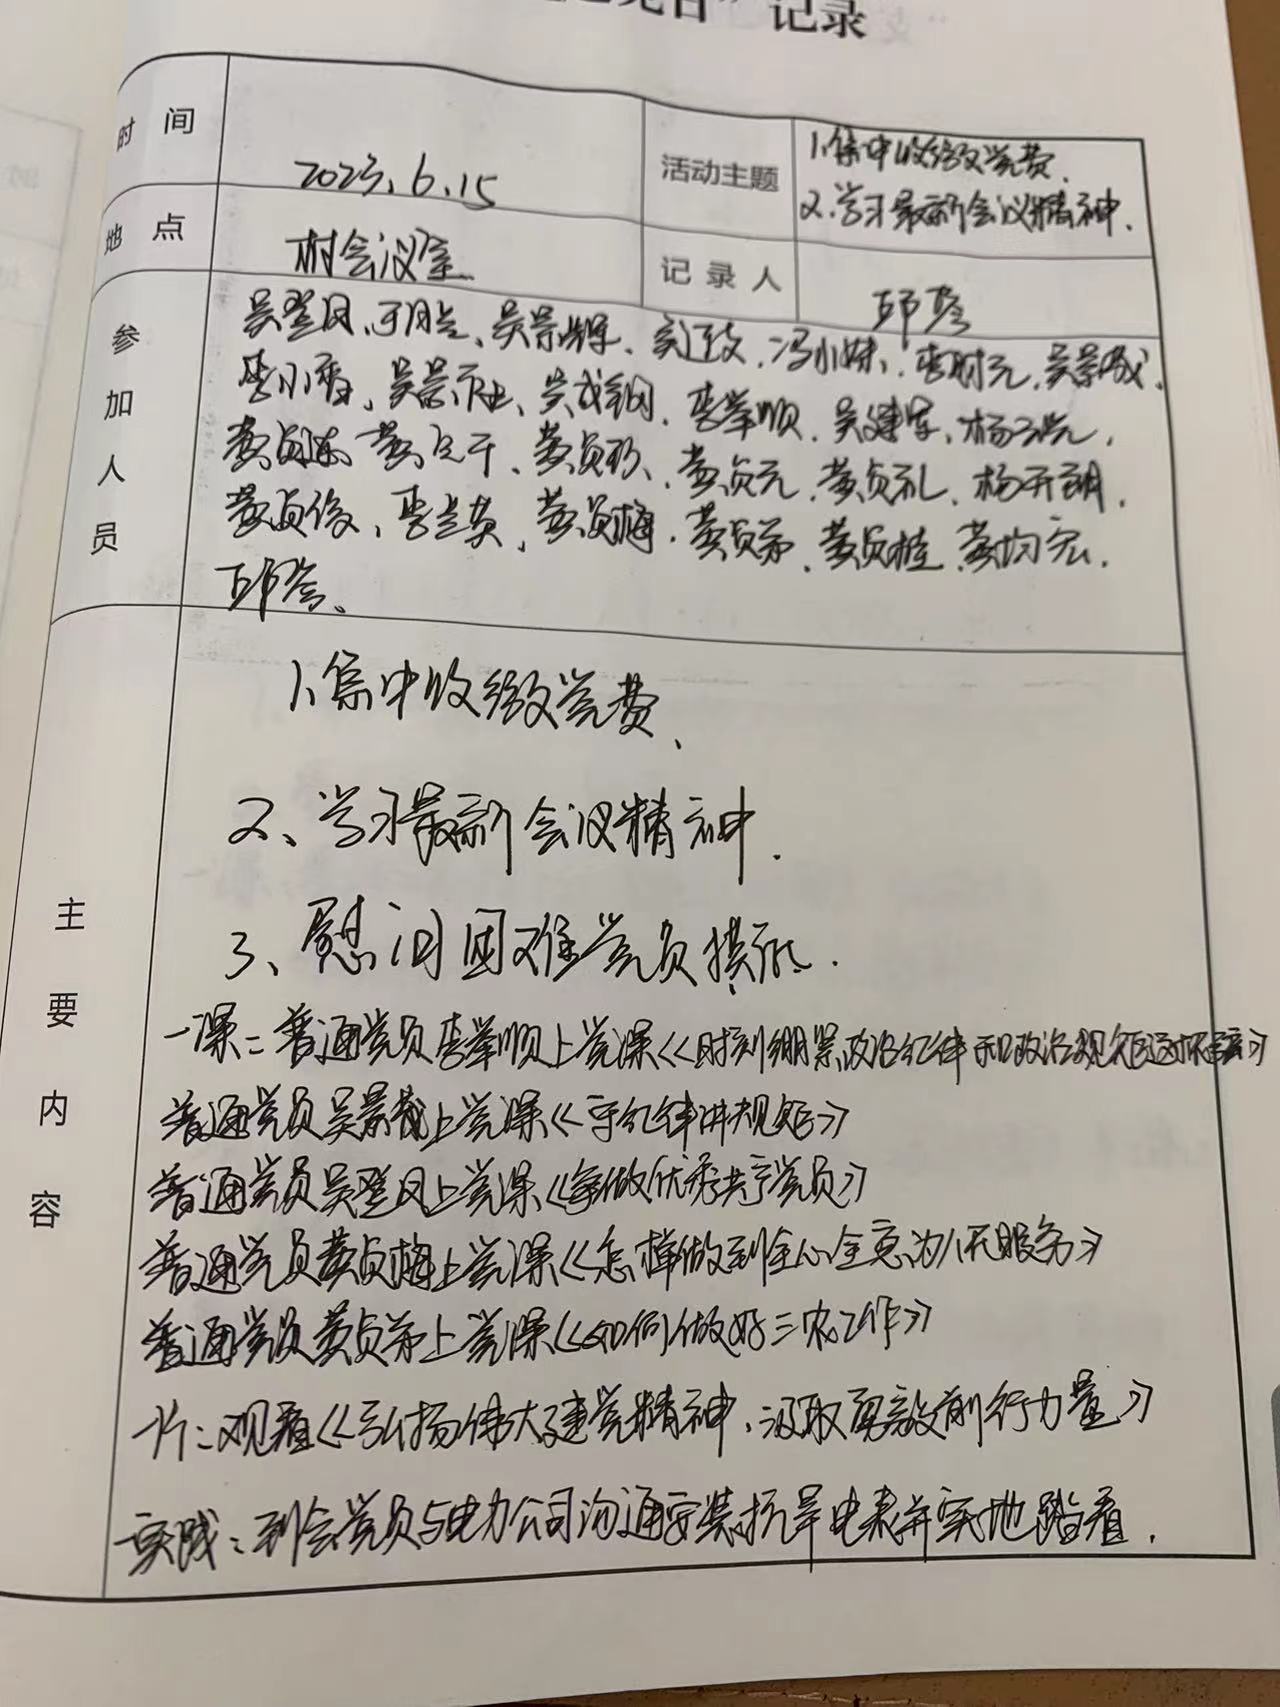 ”记录
时间
2023.6.15
活动主题
1、集中收缴党费.
2、学习最新会议精神.
地点
村会议室
记录人
邱
参加人员
吴登凤、 吴景辉、 冯小妹、李时元、吴景
李小香、吴景 、吴成钢、李举顺、吴建军、杨
黄贞 、黄贞元、黄贞礼、杨开朗.
黄贞俊、李兰英、黄贞梅、黄贞弟、黄贞桂、黄均宏.
邱
主要内容
1、集中收缴党费、
2、学习最新会议精神.
3、慰问困难党员
一课:普通党员李举顺上党课《时刻绷紧政治纪律和政治规矩这根弦》
普通党员吴景 上党课《守纪律讲规矩》
普通党员吴登凤上党课《争做优秀共产党员》
普通党员黄贞梅上党课《怎样做到全心全意为人民服务》
普通党员黄贞弟上党课《如何做好三农工作》
一片:观看《弘扬伟大建党精神、汲取勇毅前行力量》
一实践:到会党员与电力公司沟通安装抗旱电表并实地踏看.